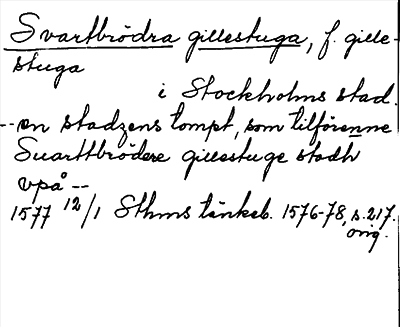 Svartbrödra gillestuga, f. gille-
stuga
i Stockholms stad.
--en stadzens tompt, som tilförenne
Suarttbrödere gillestuge stodh
vpå--
1577 12/1 Sthms tänkeb. 1576-78, s. 217.
orig.